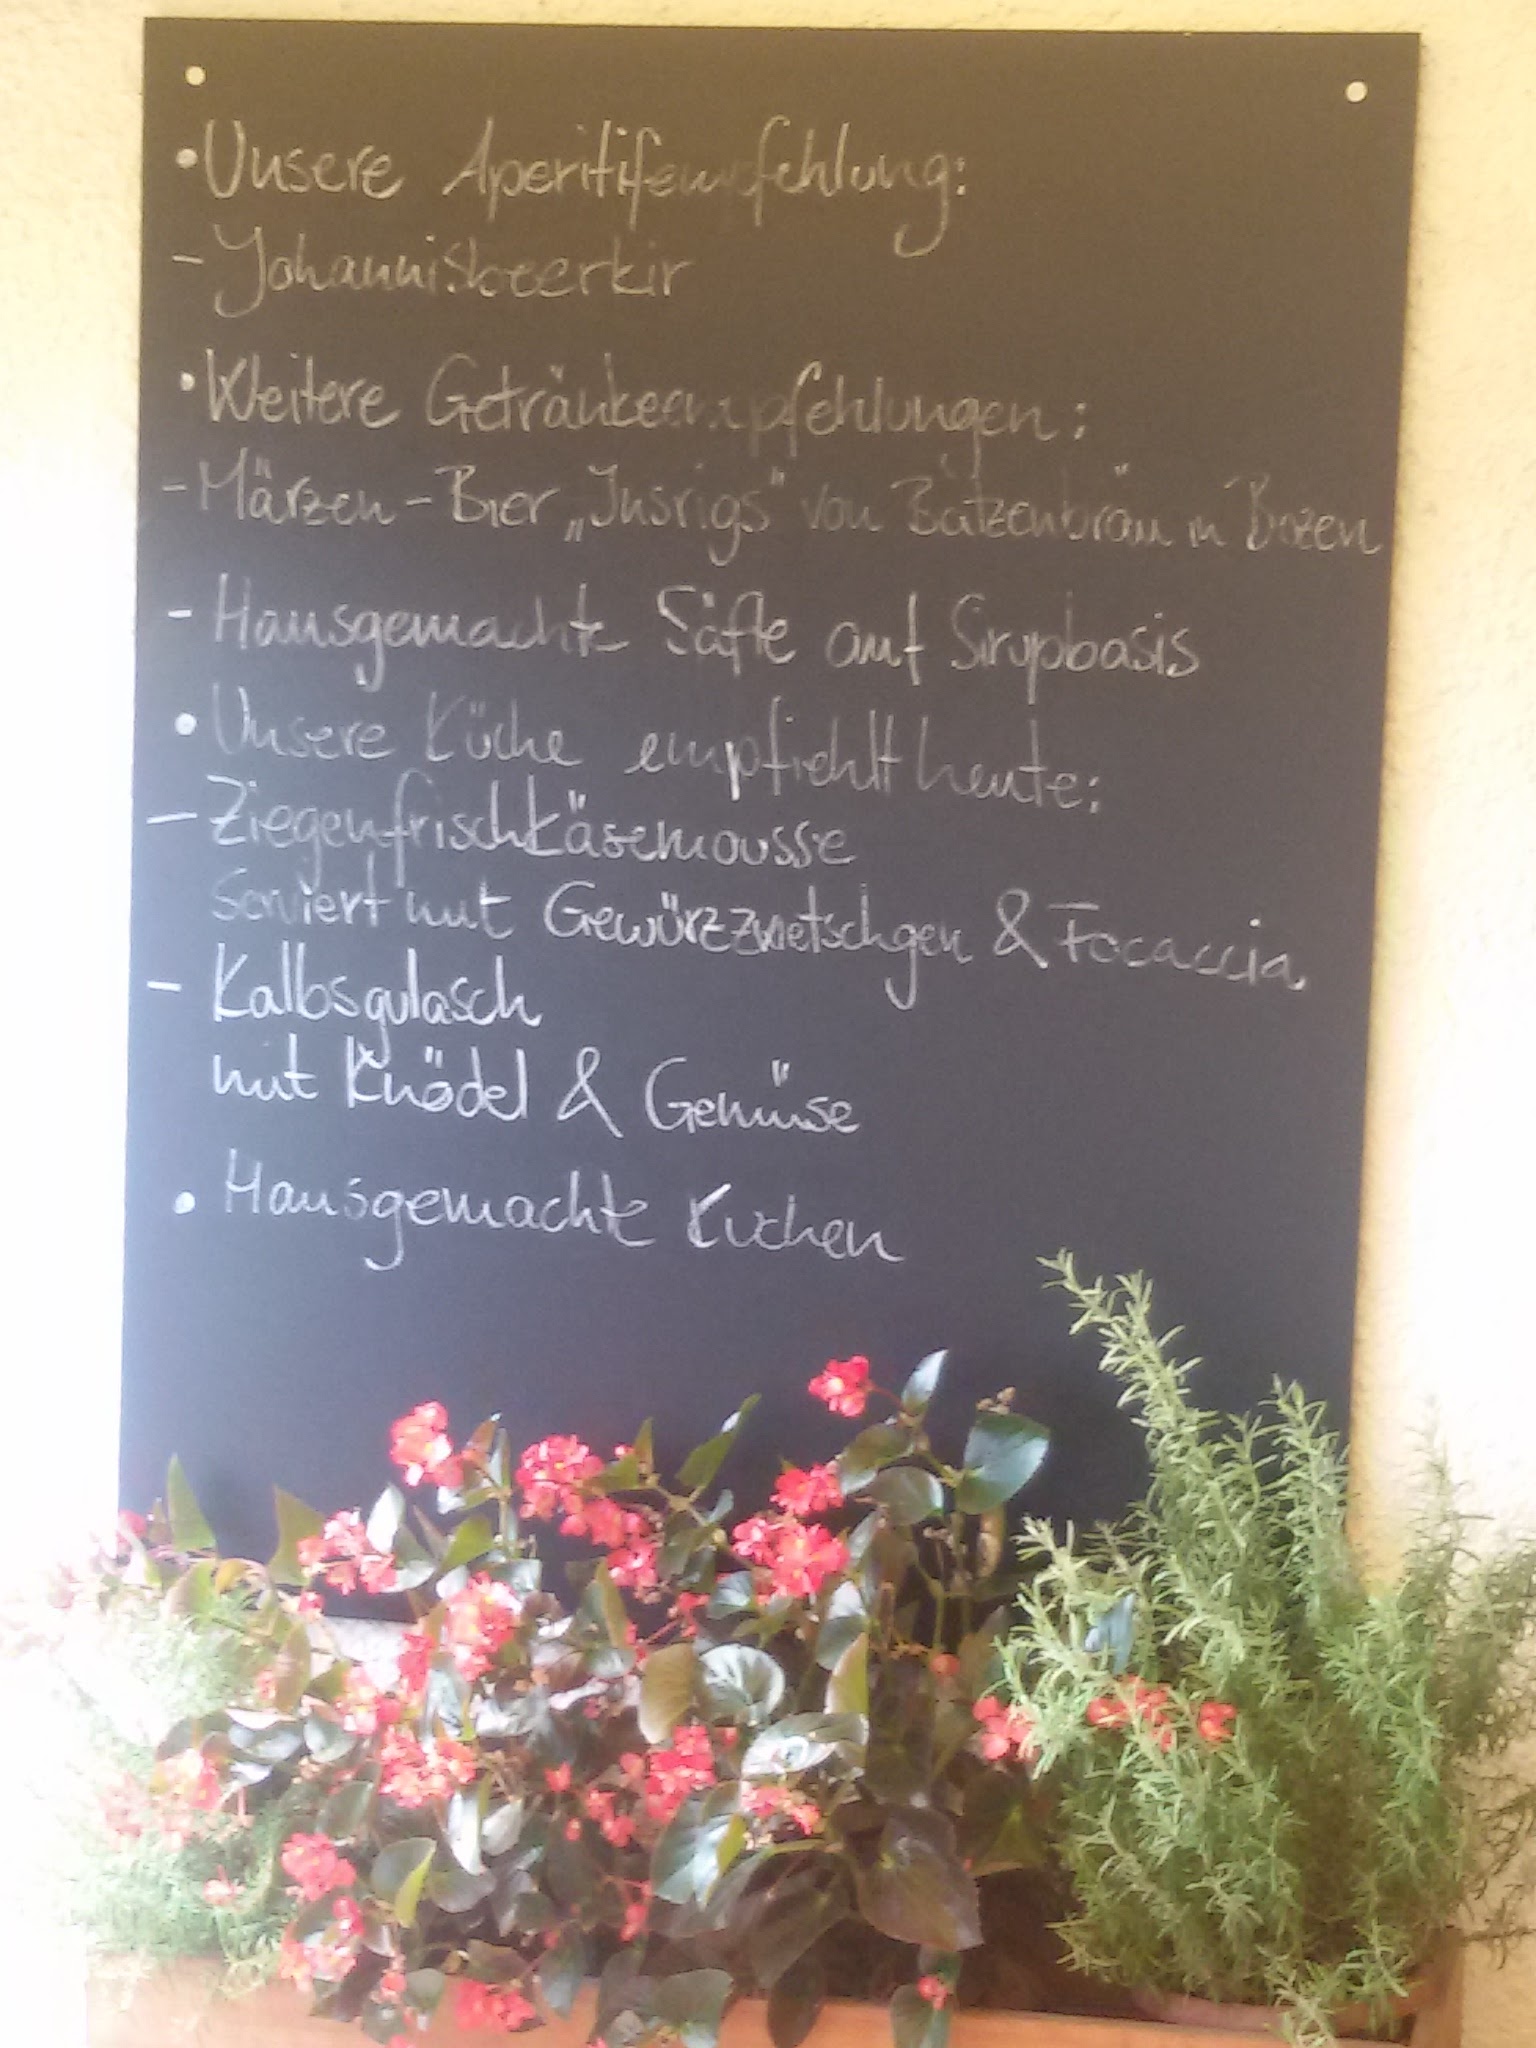 • Unsere Aperitifempfehlung:
- Johannisbeerkir
• Weitere Getränkeempfehlungen:
- Märzen - Bier „Insrigs“ von Batzenbräu in Bozen
- Hausgemachte Säfte auf Sirupbasis
• Unsere Küche empfiehlt heute:
- Ziegenfrischkäsemousse
serviert mit Gewürzzwetschgen & Focaccia
- Kalbsgulasch
mit Knödel & Gemüse
• Hausgemachte Kuchen